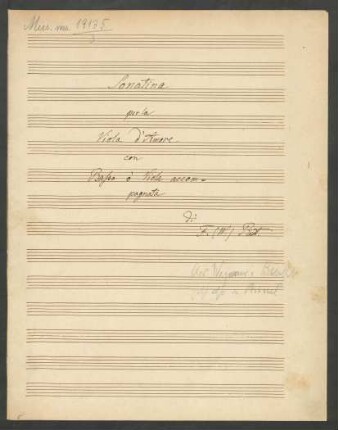 Mus. ms. 19135
3
Sonatina
per la
Viola d'Amore
con
Basso ò Viola accom=
pagnata
di
F. (W.) Rust.